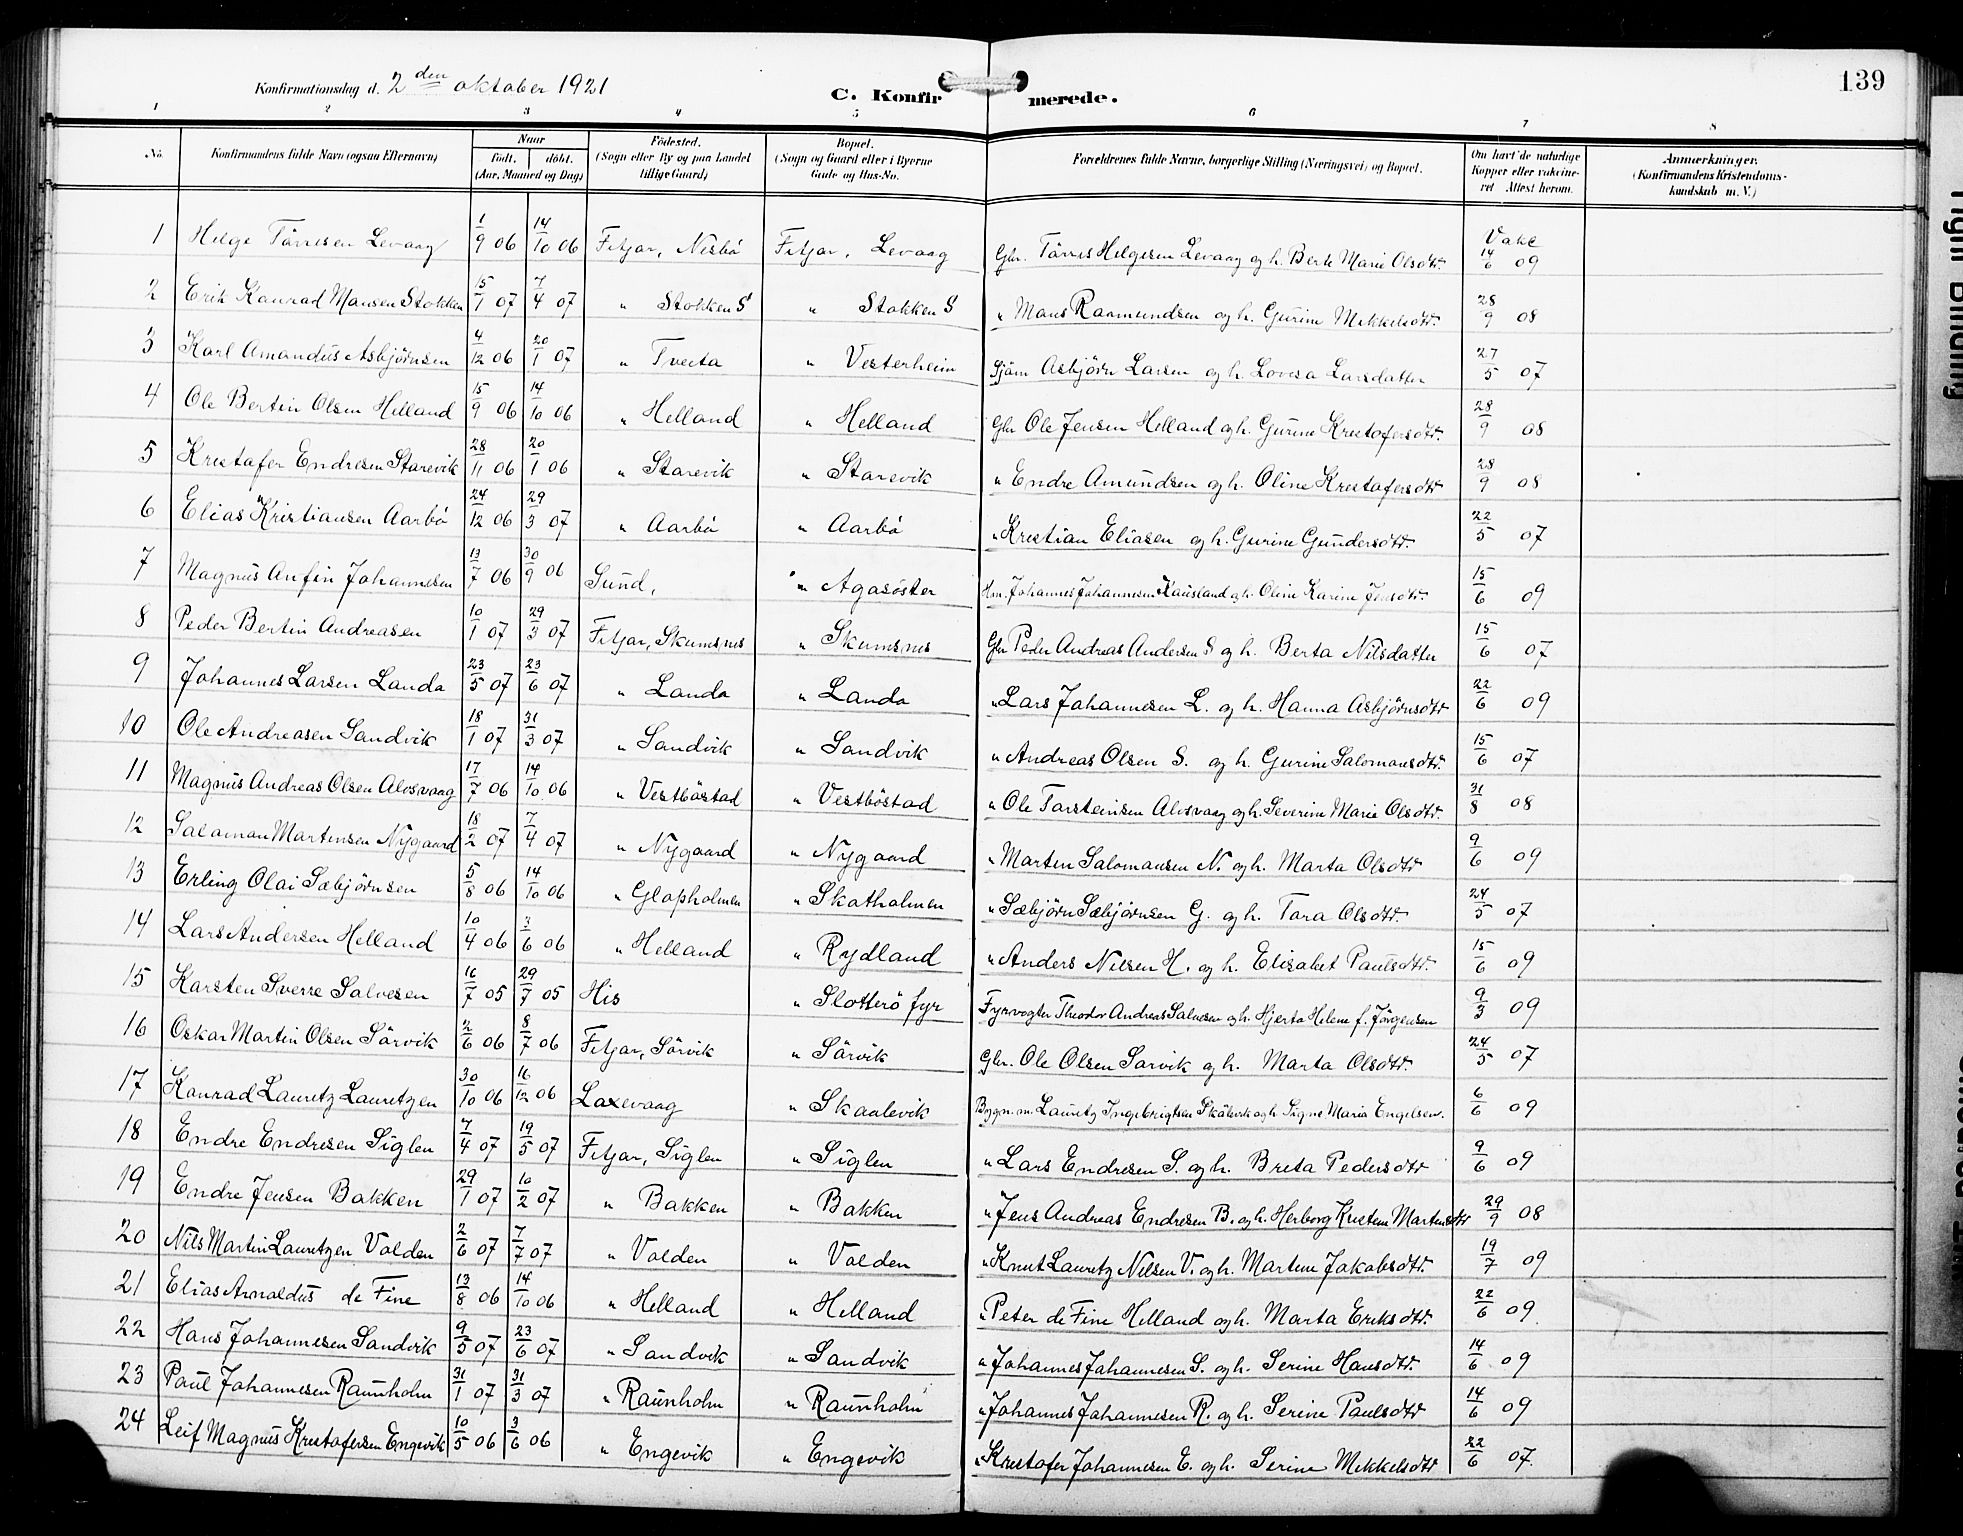 Konfirmationsdag d. 2den oktober 1921 C. Konfirmerede. 139
1 2 3 4 5 6 7 8
No. Konfirmandens fulde Navn (ogsaa Efternavn) Naar født. døbt. (Aar, Maaned og Dag) Fødested. (Sogn eller By og paa Landet tillige Gaard) Bopæl. (Sogn og Gaard eller i Byerne Gade og Hus-No. Forældrenes fulde Navne, borgerlige Stilling (Næringsvei) og Bopæl. Om havt de naturlige Kopper eller vakcineret Attest herom. Anmærkninger. (Konfirmandens Kristendomskundskab m. V.)
1 Helge Tørresen Levaag 1/9 06 14/10 06 Fitjar, Nesbø Fitjar, Levaag Gbr. Tørres Helgesen Levaag og h. Berte Marie Olsdtr. Vakc 14/6 09
2 Erik Konrad Mansen Stokken 15/1 07 7/4 07 " Stokken S " Stokken S " Mons Raamundsen og h. Gurine Mikkelsdtr. 28/9 08
3 Karl Amandus Asbjørnsen 4/12 06 20/1 07 " Tveita " Vesterheim Sjøm Asbjørn Larsen og h. Lovisa Larsdatter 27/5 07
4 Ole Bertin Olsen Helland 15/9 06 14/10 06 " Helland " Helland Gbr Ole Jensen Helland og h. Gurine Krestofersdtr. 28/9 08
5 Krestofer Endresen Starevik 28/11 06 20/1 06 " Starevik " Starevik " Endre Amundsen og h. Oline Krestofersdtr 28/9 08
6 Elias Kristiansen Aarbø 24/12 06 29/3 07 " Aarbø " Aarbø " Krestian Eliasen og h. Gurine Gundersdtr. 22/5 07
7 Magnus Anfin Johannesen 13/7 06 30/9 06 Sund, " Agasøster Hm. Johannes Johannesen Kausland og h. Oline Karine Jensdtr. 15/6 09
8 Peder Bertin Andreasen 10/1 07 29/3 07 Fitjar, Skumsnes " Skumsnes Gbr Peder Andreas Andersen S og h. Berta Nilsdatter 15/6 07
9 Johannes Larsen Landa 23/5 07 23/6 07 " Landa " Landa " Lars Johannesen L. og h. Hanna Asbjørnsdtr 22/6 09
10 Ole Andreasen Sandvik 18/1 07 31/3 07 " Sandvik " Sandvik " Andreas Olsen S. og h. Gurine Salomonsdtr. 15/6 07
11 Magnus Andreas Olsen Alvsvaag 17/7 06 14/10 06 " Vestbøstad " Vestbøstad " Ole Torsteinsen Alvsvaag og h. Severine Marie Olsdtr. 31/8 08
12 Salomon Martinsen Nygaard 18/2 07 7/4 07 " Nygaard " Nygaard " Marten Salomonsen N. og h. Marta Olsdtr 9/6 09
13 Erling Olai Sæbjørnsen 5/8 06 14/10 06 " Glopholmen " Skotholmen " Sæbjørn Sæbjørnsen G. og h. Tora Olsdtr. 24/5 07
14 Lars Andersen Helland 10/4 06 3/6 06 " Helland " Rydland " Anders Nilsen H. og h. Elisabet Paulsdtr. 15/6 09
15 Karsten Sverre Salvesen 16/7 05 29/7 05 His " Slotterø fyr Fyrvogter Theodor Andreas Salvesen og h. Hjerta Helene f. Jørgensen 9/3 09
16 Oskar Martin Olsen Sørvik 2/6 06 8/7 06 Fitjar, Sørvik " Sørvik Gbr. Ole Olsen Sørvik og h. Marta Olsdtr. 24/5 07
17 Konrad Lauretz Lauretzen 30/10 06 16/12 06 Laxevaag " Skaalevik Bygn.m. Lauretz Ingebrigtsen Skålevik og h Signe Maria Engelsen. 6/6 09
18 Endre Endresen Siglen 7/4 07 19/5 07 Fitjar, Siglen " Siglen " Lars Endresen S. og h. Breta Pedersdtr 9/6 09
19 Endre Jensen Bakken 29/1 07 10/2 07 " Bakken " Bakken " Jens Andreas Endresen B. og h. Herborg Kristine Martensdtr 29/9 08
20 Nils Martin Lauretzen Volden 2/6 07 7/7 07 " Volden " Volden " Knut Lauretz Nilsen V. og h. Martine Jakobsdtr. 19/7 09
21 Elias Arnoldus de Fine 13/8 06 14/10 06 " Helland " Helland " Peter de Fine Helland og h. Marta Eriksdtr. 22/6 09.
22 Hans Johannesen Sandvik 9/5 07 23/6 07 " Sandvik " Sandvik " Johannes Johannesen S. og h. Serine Hansdtr. 14/6 09
23 Paul Johannesen Raunholm 31/1 07 31/3 07 " Raunholm " Raunholm " Johannes Johannesen R. og h. Serine Paulsdtr 14/6 09
24 Leif Magnus Krestofersen Engevik 10/5 06 3/6 06 " Engevik " Engevik " Krestofer Johannesen E. og h. Serine Mikkelsdtr 22/6 07.
Tight Binding